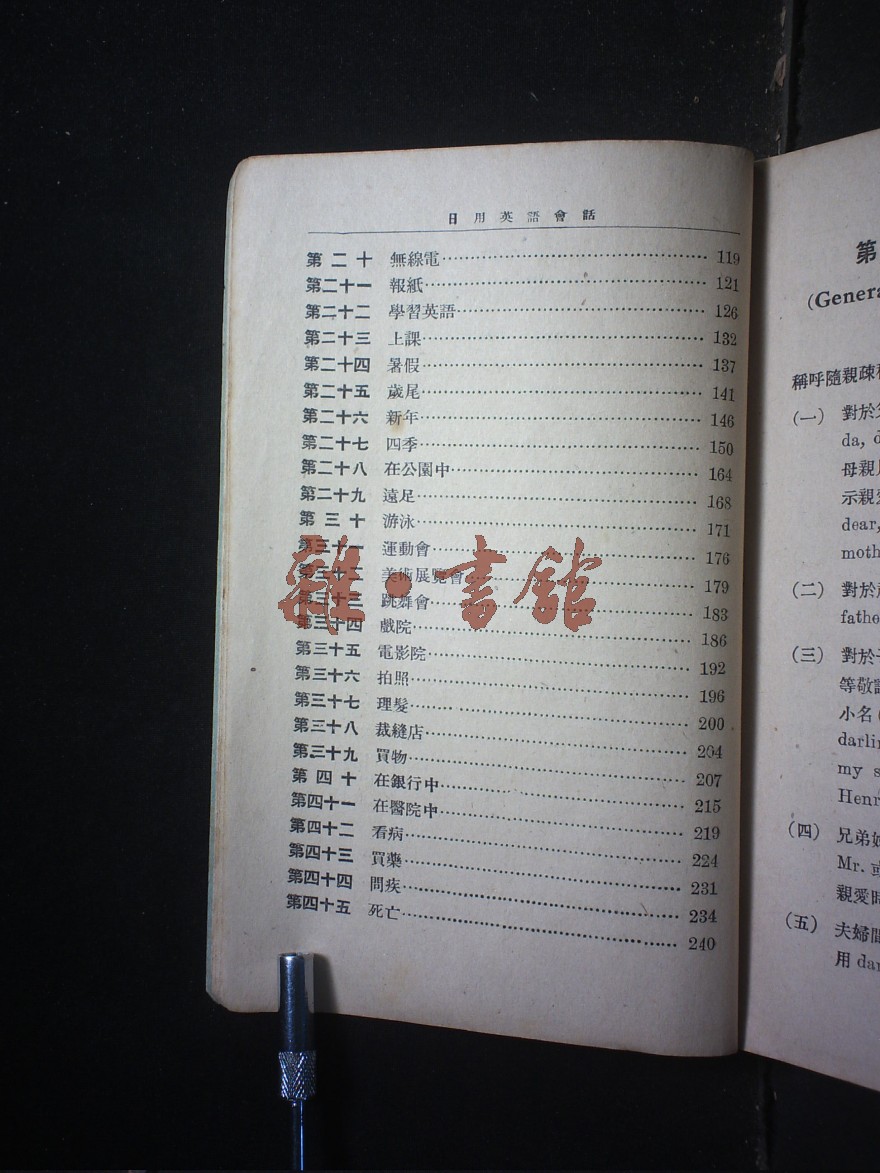 日用英語會話
第二十 無線電 119
第二十一 報紙 121
第二十二 學習英語 126
第二十三 上課 132
第二十四 暑假 137
第二十五 歲尾 141
第二十六 新年 146
第二十七 四季 150
第二十八 在公園中 164
第二十九 遠足 168
第三十 游泳 171
第三十一 運動會 176
第三十二 美術展覽會 179
第三十三 跳舞會 183
第三十四 戲院 186
第三十五 電影院 192
第三十六 拍照 196
第三十七 理髮 200
第三十八 裁縫店 204
第三十九 買物 207
第四十 在銀行中 215
第四十一 在醫院中 219
第四十二 看病 224
第四十三 買藥 231
第四十四 問疾 234
第四十五 死亡 240
雜·書館
第
(Genera
稱呼隨親疎
(一) 對於
da,
母親
示親愛
dear,
moth
(二) 對於
fathe
(三) 對於
等敬
小名
darlin
my s
Henr
(四) 兄弟
Mr. 或
親愛時
(五) 夫婦間
用 dar